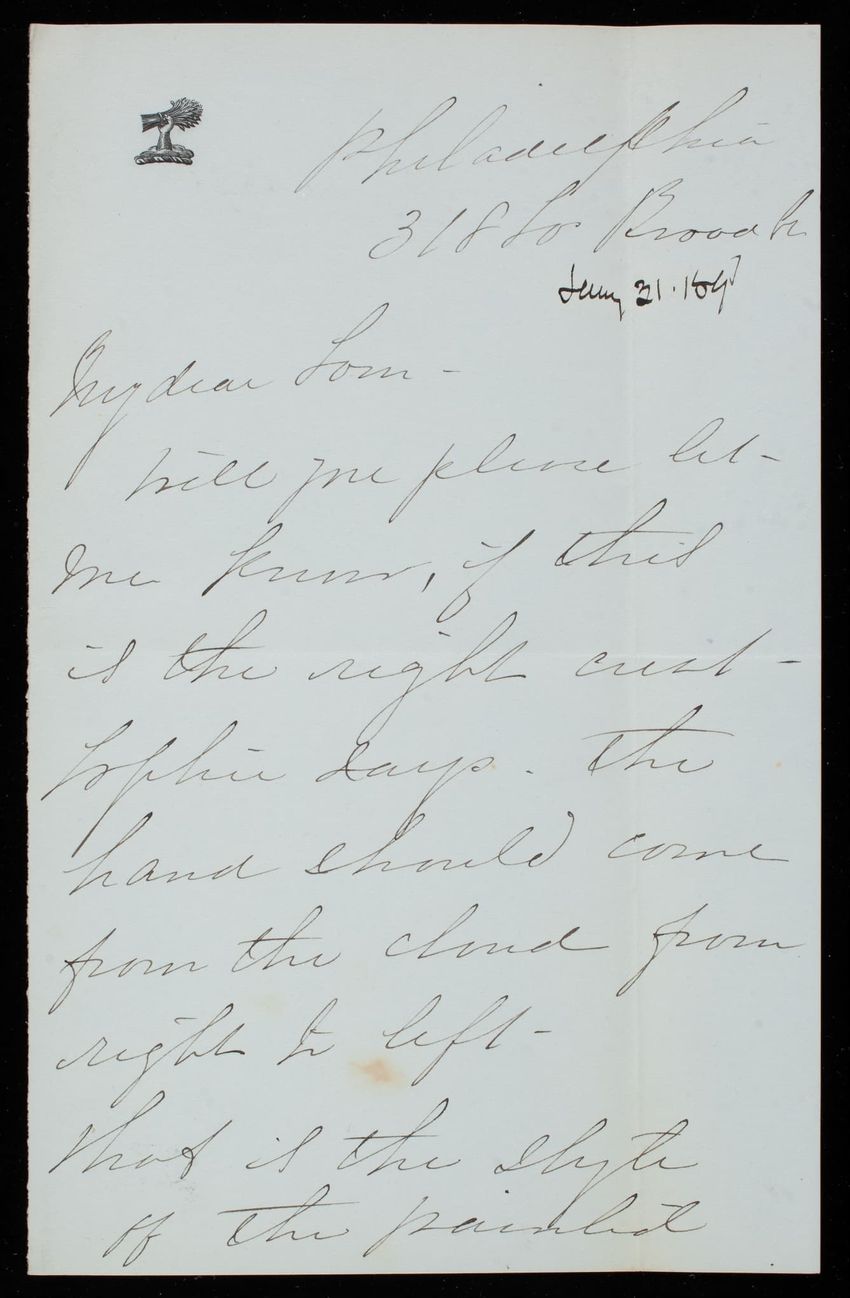 Philadelphia
318 So Broad St
21.
My dear Tom -
Will you please let -
me know, if this
is the right crest -
Sophie says. the
hand should come
from the cloud from
right to left -
that is the style
of the painted